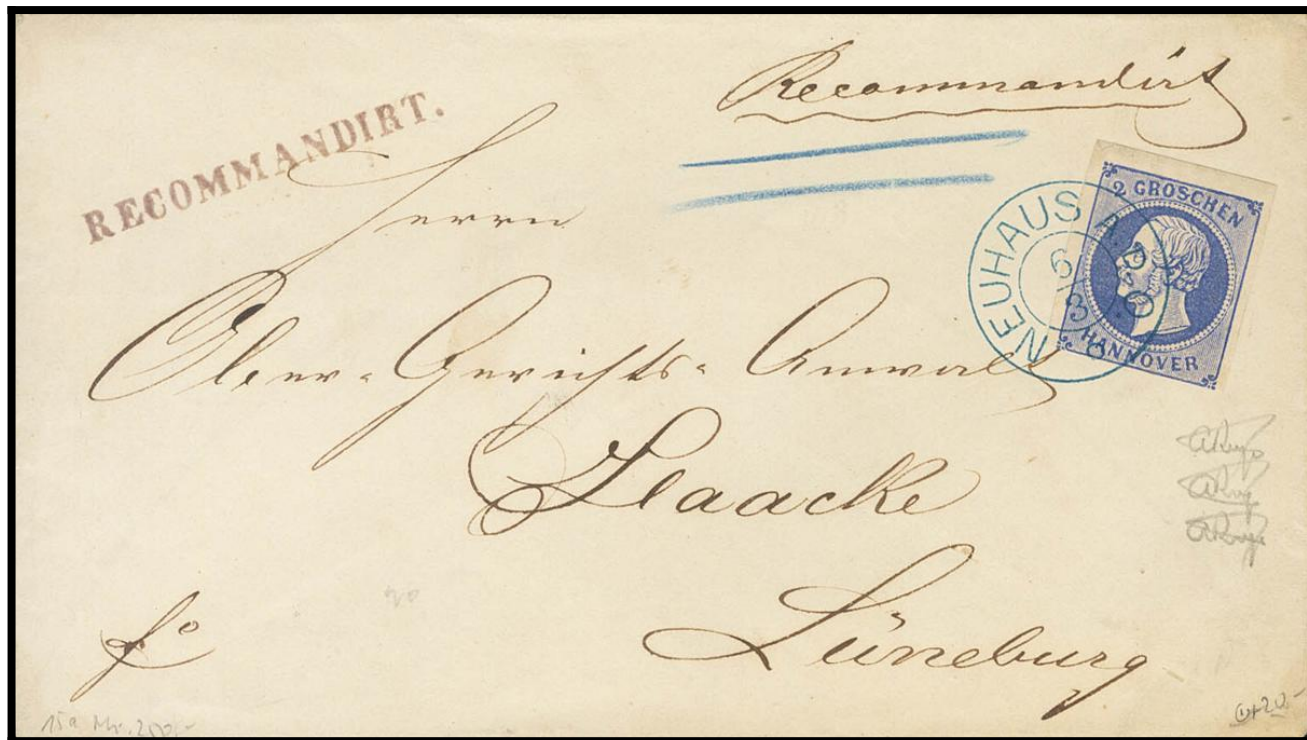 RECOMMANDIRT.
Recommandirt
2 GROSCHEN
HANNOVER
NEUHAUS A. D. O.
6
3
Herrn
Ober-Gerichts-Anwalt
Haacke
Lüneburg
fo